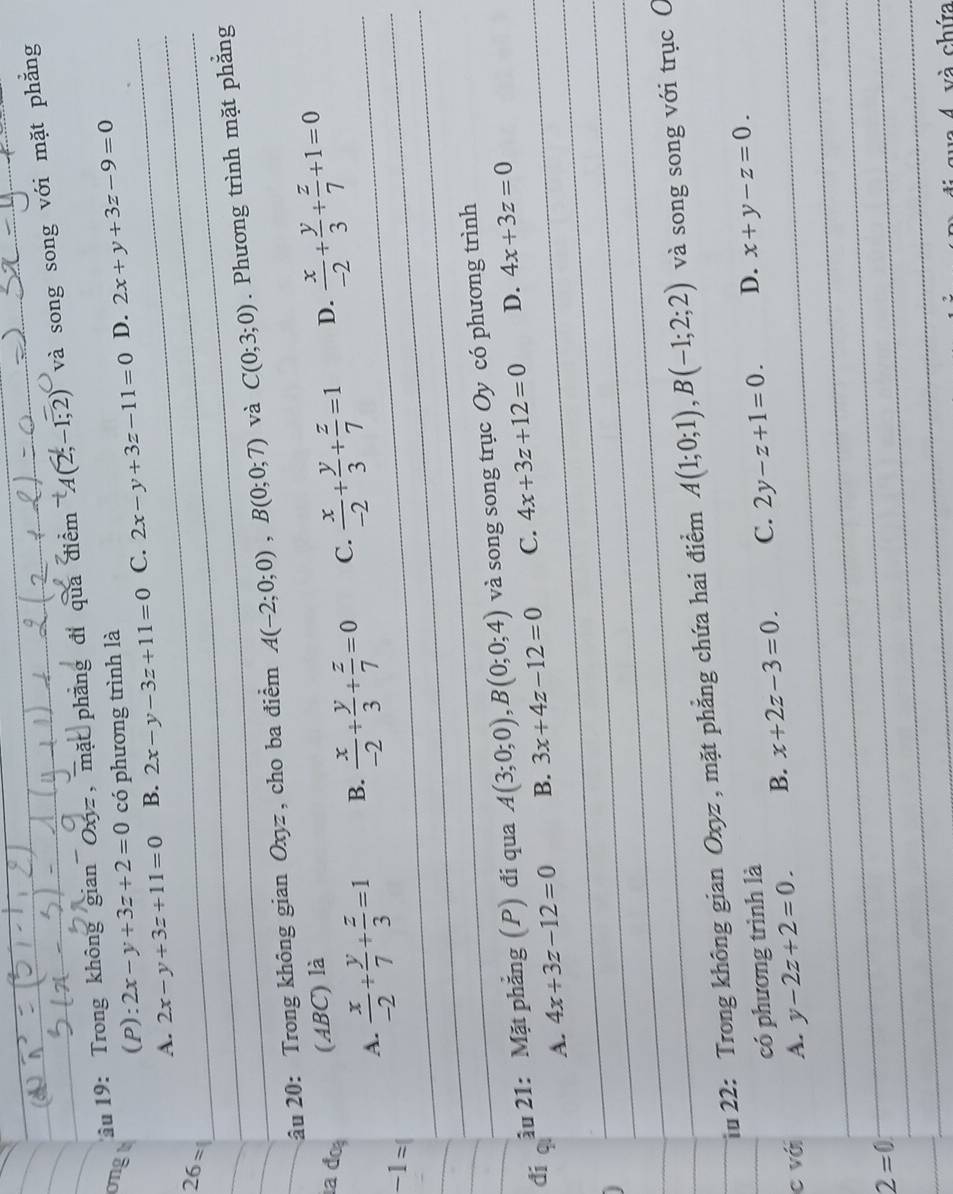 Câu 19: Trong không gian Oxyz, mặt phẳng đi qua điểm A(2;-1;2) và song song với mặt phẳng
(P): 2x-y+3z+2=0 có phương trình là
A. 2x-y+3z+11=0 B. 2x-y-3z+11=0 C. 2x-y+3z-11=0 D. 2x+y+3z-9=0
26=
âu 20: Trong không gian Oxyz, cho ba điểm A(-2;0;0), B(0;0;7) và C(0;3;0). Phương trình mặt phẳng
(ABC) là
A. x/-2 + y/7 + z/3 = 1 B. x/-2 + y/3 + z/7 = 0 C. x/-2 + y/3 + z/7 = 1 D. x/-2 + y/3 + z/7 + 1 = 0
-1=
âu 21: Mặt phẳng (P) đi qua A(3;0;0), B(0;0;4) và song song trục Oy có phương trình
A. 4x+3z-12=0 B. 3x+4z-12=0 C. 4x+3z+12=0 D. 4x+3z=0
đi
u 22: Trong không gian Oxyz, mặt phẳng chứa hai điểm A(1;0;1), B(-1;2;2) và song song với trục O
có phương trình là
A. y-2z+2=0. B. x+2z-3=0. C. 2y-z+1=0. D. x+y-z=0.
c với
2=0
A và chứa